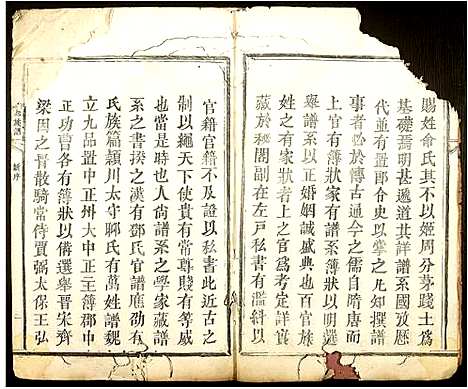 賜姓俞氏其不以姬周分茅踐土爲
基礎焉明甚遞道其詳譜系國攷歷
代並有郎令史以掌之凡知撰譜
事者必於傳古通今之儒自隋唐
上官有簿狀家有譜系簿狀以明選
舉譜系以正婚姻誠盛典也百官族
姓之有家狀者上之官爲考定詳實
藏於秘閣副在左戸私書有濫糾以
官籍官籍不及證以私書此近古之
制以繩天下使貴有常尊賤有等威
也當是時也人尚譜系之學家藏譜
系之書揆之漢有鄧氏官譜應劭
氏族篇潁川太守聊氏有萬姓譜魏
立九品置中正州大中正主簿郡中
正功曹各有簿狀以備選舉晉宋齊
梁因之晉散騎常侍賈弼太保王弘
族譜
新序